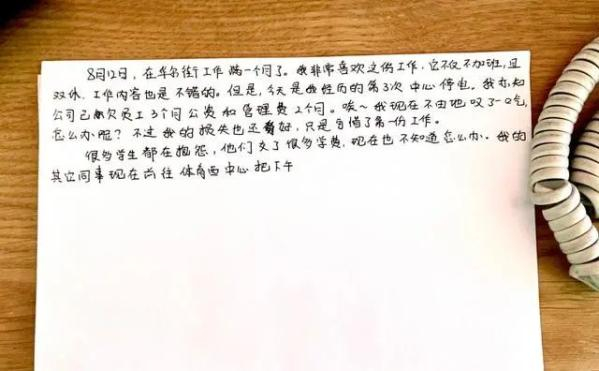 8月12日，在华尔街工作满一个月了。我非常喜欢这份工作，它不仅不加班，且
双休，工作内容也是不错的。但是，今天是我经历的第3次中心停电。我亦知
公司已拖欠员工3个月公资和管理费2个月。唉~我现在不由地叹了一口气，
怎么办呢？不过我的损失也还算好，只是可惜了第一份工作。
很多学生都在抱怨，他们交了很多学费，现在也不知道怎么办。我的
其它同事现在前往体育西中心把下午